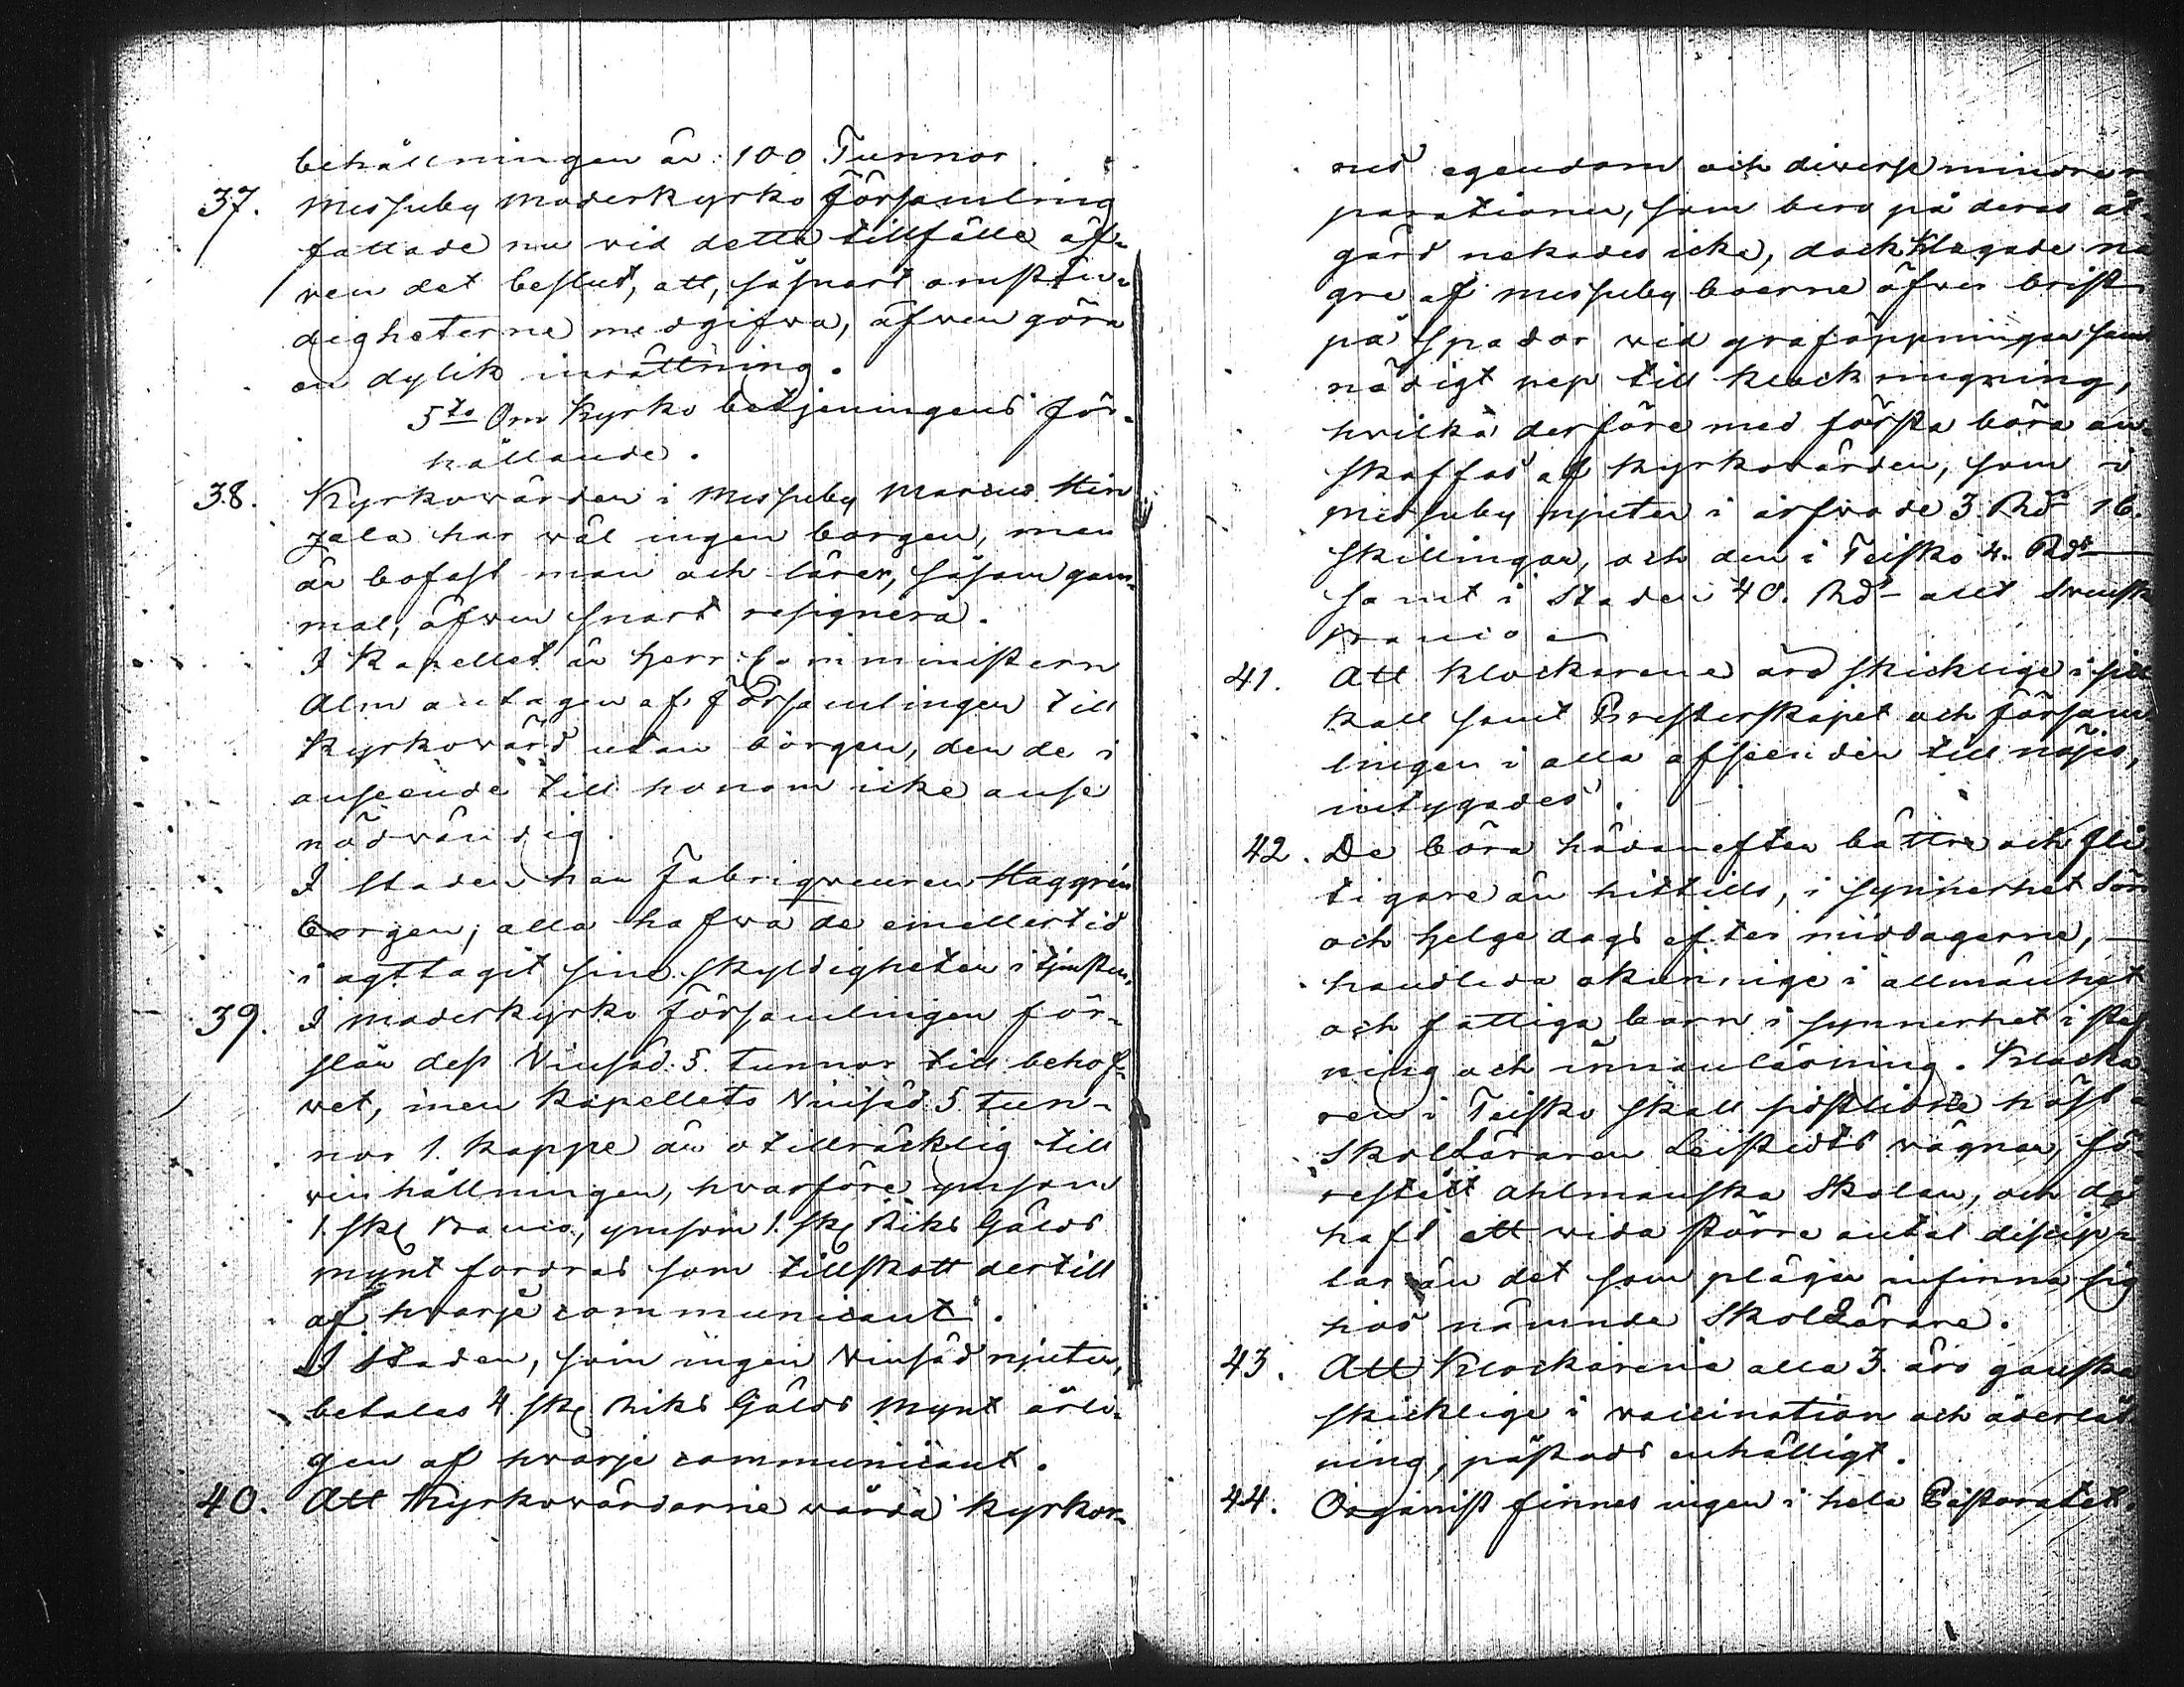 behållningen är 100 Tunnor.
37. Messuby Moderkyrko Församling
fattade nu vid detta tillfälle äf-
ven det beslut, att, så snart omstän-
digheterne medgifva, äfven göra
en dylik inrättning.
5to Om Kyrko betjeningens för-
hållande.
38. Kyrkowärden i Messuby Marcus Hin
zala har väl ingen borgen, men
är bofast man och lärer, såsom gam-
mal, äfven snart resignera.
I Kapellet är Herr Comministern
Alm antagen af Församlingen till
Kyrkowärd utan borgen, den de i
anseende till honom icke anse
nödvändig.
I Staden har Fabriqueuren Haggrén
borgen; alla hafva de emellertid
i agttagit sine skyldigheter i tjensten.
39. I Moderkyrko församlingen för-
slår dess Vinsäd 5. Tunnor till behof-
vet, men Kapellets Vinsäd 5 Tun-
nor 1. Kappe är otillräcklig till
vinhållningen, hvarföre ymsom
1. sk. Banco, ymsom 1. sk. Riks Gälds
mynt fordras som tillskott dertill
af hvarje communicant.
I Staden, som ingen Vinsäd njuter,
betalas 4. sk. Riks Gälds Mynt årli-
gen af hvarje communicant.
40. Att Kyrkowärdarne vårda Kyrkor-
nes egendom och diverse mindre re
parationer, som bero på deras åt-
gärd nekades icke, dock klagade nå
gre af Messuby boerne öfver brist
på Spador vid graföppningar samt
nödigt rep till klockringning,
hvilka derföre med första böra an-
skaffas af Kyrkovärden, som i
Messuby njuter i arfvode 3. Rd 16.
skillingar, och den i Teisko 4. Rdr
samt i Staden 40. Rdr allt Svensk
Banco
41. Att Klockarene äro skicklige i sitt
kall samt Presterskapet och försam
lingen i alla afseenden till nöjes,
intygades.
42. De böra hädanefter bättre och fli
tigare än hittills, i synnerhet Sön
och Helgedags eftermiddagarne,
handleda okunnige i allmänhet
och fattiga barn i synnerhet i staf
ning och innanläsning. Klocka
ren i Teisko skall sistlidne höst
Skolläraren Leistedts vägnar, fö-
restått Ahlmanska Skolan, och då
haft ett vida större antal discip
lar än det som plägar infinna sig
hos nämnde Skollärare.
43. Att Klockarena alla 3. äro ganska
skicklige i vaccination och åderlåt
ning, påstods enhälligt.
44. Organist finnes ingen i hela Pastoratet.